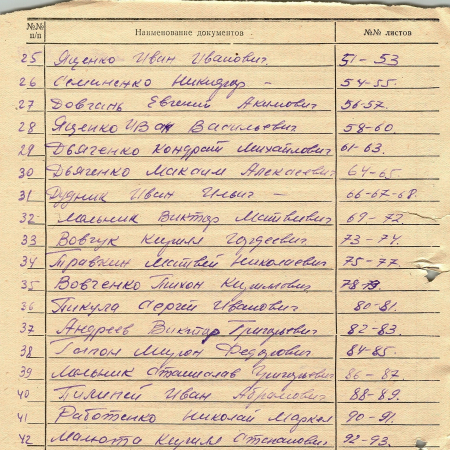 №№ п/п Наименование документов №№ листов
25 Ященко Иван Иванович 51-53
26 Семиненко Никифор - 54-55.
27 Довгань Евгений Акимович 56-57.
28 Ященко Иван Васильевич 58-60.
29 Дьяченко Кондрат Михайлович 61-63.
30 Дьяченко Максим Алексеевич 64-65
31 Рудник Иван Ильич - 66-67-68.
32 Мальник Виктор Матвиевич 69-72
33 Вовчук Кирилл Гордеевич 73-74.
34 Травкин Матвей Николаевич 75-77.
35 Вовченко Тихон 78-79.
36 Пикула Сергей Иванович 80-81.
37 Андреев Виктор Григорьевич 82-83.
38 Гапон Мирон Федорович 84-85.
39 Мальник Станислав Григорьевич 86-87.
40 Пилипей Иван Абрамович 88-89.
41 Работенко Николай Маркел 90-91.
42 Малюта Кирилл Степанович 92-93.